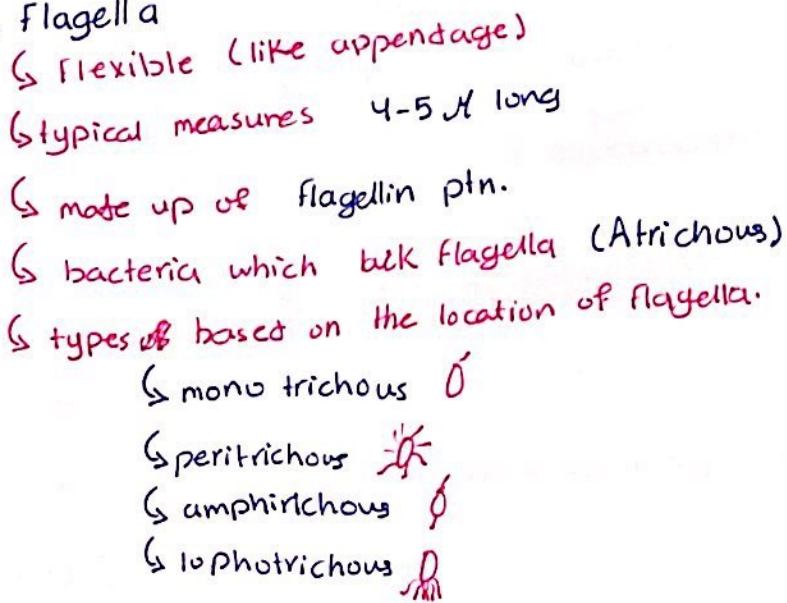 Flagella
↳ Flexible (like appendage)
↳ typical measures 4-5 M long
↳ made up of flagellin ptn.
↳ bacteria which lack flagella (Atrichous)
↳ types of based on the location of flagella.
↳ mono trichous
↳ peritrichous
↳ amphirichous
↳ lophotrichous